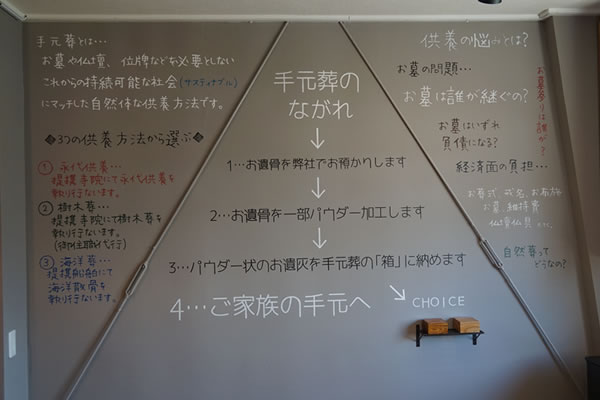 手元葬とは…
お墓や仏壇、位牌などを必要としない
これからの持続可能な社会(サスティナブル)
にマッチした自然体な供養方法です。
◆3つの供養方法から選ぶ◆
① 永代供養…
提携寺院にて永代供養を
執り行ないます。
② 樹木葬…
提携寺院にて樹木葬を
執り行ないます。
(御住職代行)
③ 海洋葬…
提携船舶にて
海洋散骨を
執り行ないます。
手元葬の
ながれ
↓
1…お遺骨を弊社でお預かりします
↓
2…お遺骨を一部パウダー加工します
↓
3…パウダー状のお遺灰を手元葬の「箱」に納めます
4…ご家族の手元へ
CHOICE
供養の悩みとは?
お墓の問題…
お墓は誰が継ぐの?
お墓参りは誰が?
お墓はいずれ
負債になる?
経済面の負担…
お葬式、戒名、お布施
お墓、維持費
仏壇仏具 etc.
自然葬って
どうなの?